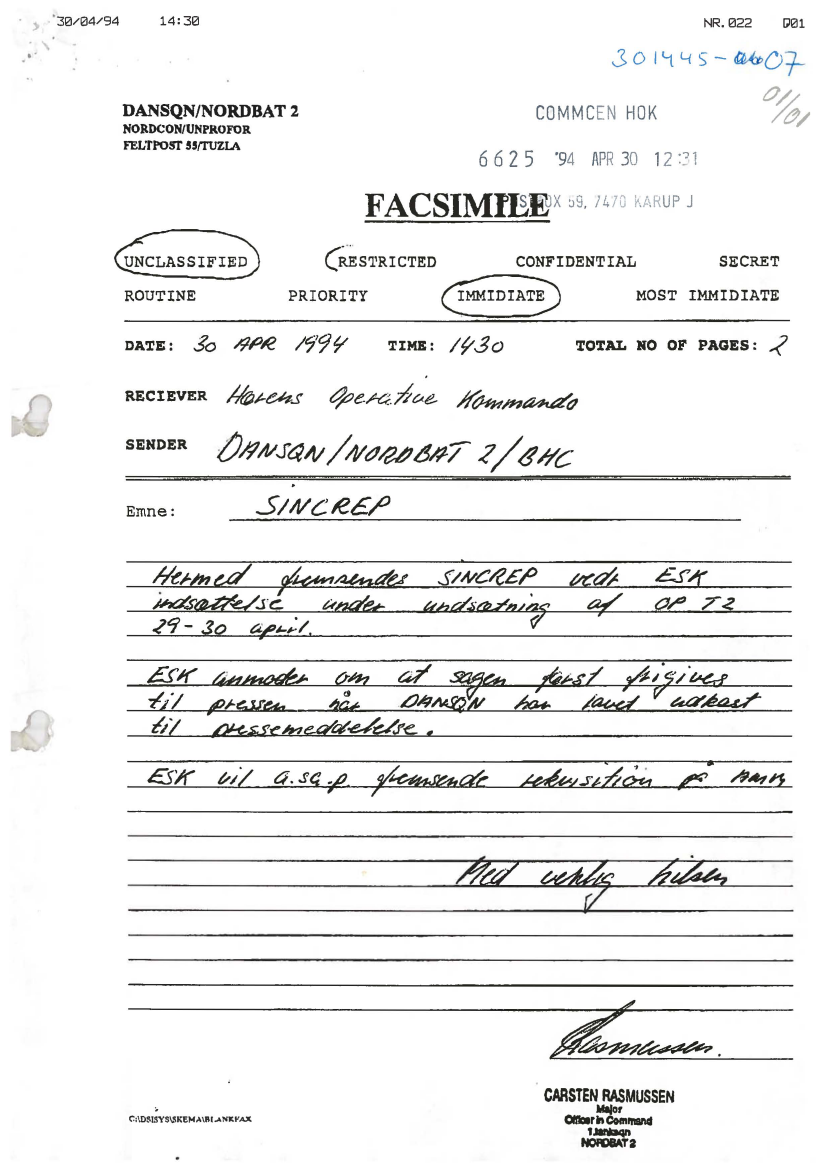 30/04/94 14:30 NR.022 D01
301445-07
01/01
DANSQN/NORDBAT 2 COMMCEN HOK
NORDCON/UNPROFOR
FELTPOST 55/TUZLA
6625 '94 APR 30 12:31
FACSIMILE
59, 7470 KARUP J
UNCLASSIFIED RESTRICTED CONFIDENTIAL SECRET
ROUTINE PRIORITY IMMIDIATE MOST IMMIDIATE
DATE: 30 APR 1994 TIME: 1430 TOTAL NO OF PAGES: 2
RECIEVER Hærens Operative Kommando
SENDER DANSQN/NORDBAT 2/BHC
Emne: SINCREP
Hermed fremsendes SINCREP vedr ESK
indsættelse under undsætning af OP T2
29-30 april.
ESK anmoder om at sagen først frigives
til pressen når DANSQN har lavet udkast
til pressemeddelelse.
ESK vil a.sa.p. fremsende rekvisition på AMM
Med venlig hilsen
Rasmussen.
CARSTEN RASMUSSEN
Major
Officer in Command
NORDBAT 2
C:\DSISYS\SKEMA\BLANKFAX